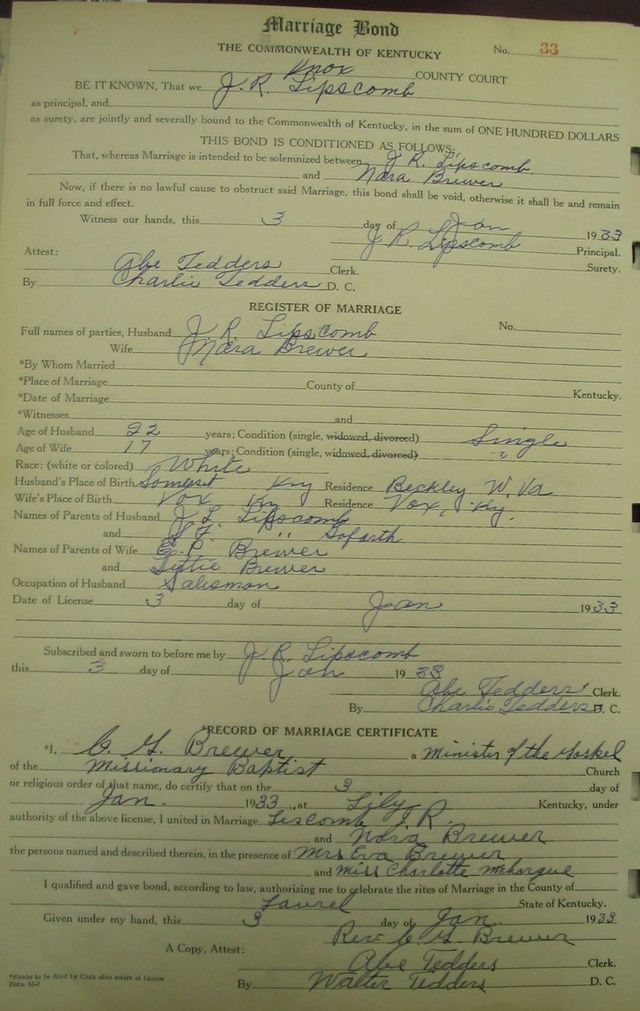 Marriage Bond
THE COMMONWEALTH OF KENTUCKY No. 33
Knox COUNTY COURT
BE IT KNOWN, That we J. R. Lipscomb
as principal, and
as surety, are jointly and severally bound to the Commonwealth of Kentucky, in the sum of ONE HUNDRED DOLLARS
THIS BOND IS CONDITIONED AS FOLLOWS:
That, whereas Marriage is intended to be solemnized between J R. Lipscomb
and Nora Brewer
Now, if there is no lawful cause to obstruct said Marriage, this bond shall be void, otherwise it shall be and remain
in full force and effect.
Witness our hands, this 3 day of Jan 1933
J R. Lipscomb Principal.
Attest: Surety.
Abe Tedders Clerk.
By Charlie Tedders D. C.
REGISTER OF MARRIAGE
Full names of parties, Husband J R Lipscomb No.
Wife Nora Brewer
*By Whom Married
*Place of Marriage County of Kentucky.
*Date of Marriage
*Witnesses and
Age of Husband 22 years; Condition (single, widowed, divorced) Single
Age of Wife 17 years; Condition (single, widowed, divorced) "
Race: (white or colored) White
Husband's Place of Birth Somerset Ky Residence Beckley W. Va
Wife's Place of Birth Vox Ky Residence Vox, Ky.
Names of Parents of Husband J. L. Lipscomb
and "
Names of Parents of Wife E. P. Brewer
and Brewer
Occupation of Husband Salesman
Date of License 3 day of Jan 1933
Subscribed and sworn to before me by J. R. Lipscomb
this 3 day of Jan 1933
Abe Tedders Clerk.
By Charlie Tedders D. C.
*RECORD OF MARRIAGE CERTIFICATE
*I, C. G. Brewer a Minister of the Goskel
of the Missionary Baptist Church
or religious order of that name, do certify that on the 3 day of
Jan. 1933, at Lily Kentucky, under
authority of the above license, I united in Marriage Liscomb J. R.
and Nora Brewer
the persons named and described therein, in the presence of Mrs Eva Brewer
and Miss Charlotte McHargue
I qualified and gave bond, according to law, authorizing me to celebrate the rites of Marriage in the County of
Laurel State of Kentucky.
Given under my hand, this 3 day of Jan. 1933
Rev. C. G. Brewer
A Copy, Attest: Abe Tedders Clerk.
*Blanks to be filled by Clerk after return of License
Form M-1 By Walter Tedders D. C.